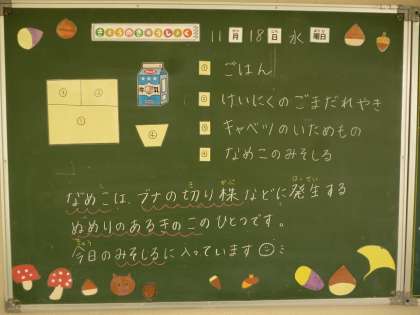 きょうのきゅうしょく 11月18日 水曜日
① ごはん
② けいにくのごまだれやき
③ キャベツのいためもの
④ なめこのみそしる
なめこは、ブナの切り株などに発生する
ぬめりのあるきのこのひとつです。
今日のみそしるに入っています